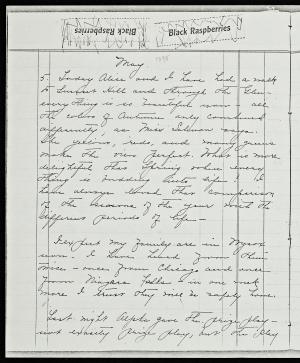 Black Raspberries
Black Raspberries
May
5. Today Alice and I have had a walk
to Sunset Hill and through the Glen -
everything is so beautiful now - all
the colors of Autumn only combined
differently, as Miss says.
The yellows, reds, and many greens
make the view perfect. What is more
delightful than Spring when every
thing is budding into life? I
have always loved that comparison
of the seasons of the year with the
different periods of life -
I expect my family are in
now. I have heard from them
twice - once from Chicago and once
from Niagara Falls - in one week
more I trust they will be safely home.
Last night Alpha gave the prize play -
not exactly prize play, but the play